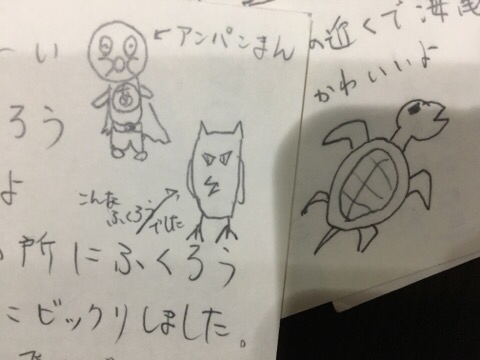 ーい
←アンパンまん
あ
ろう
よ
こんな
ふくろう
でした
所にふくろう
こビックリしました。
の近くで海
かわいいよ